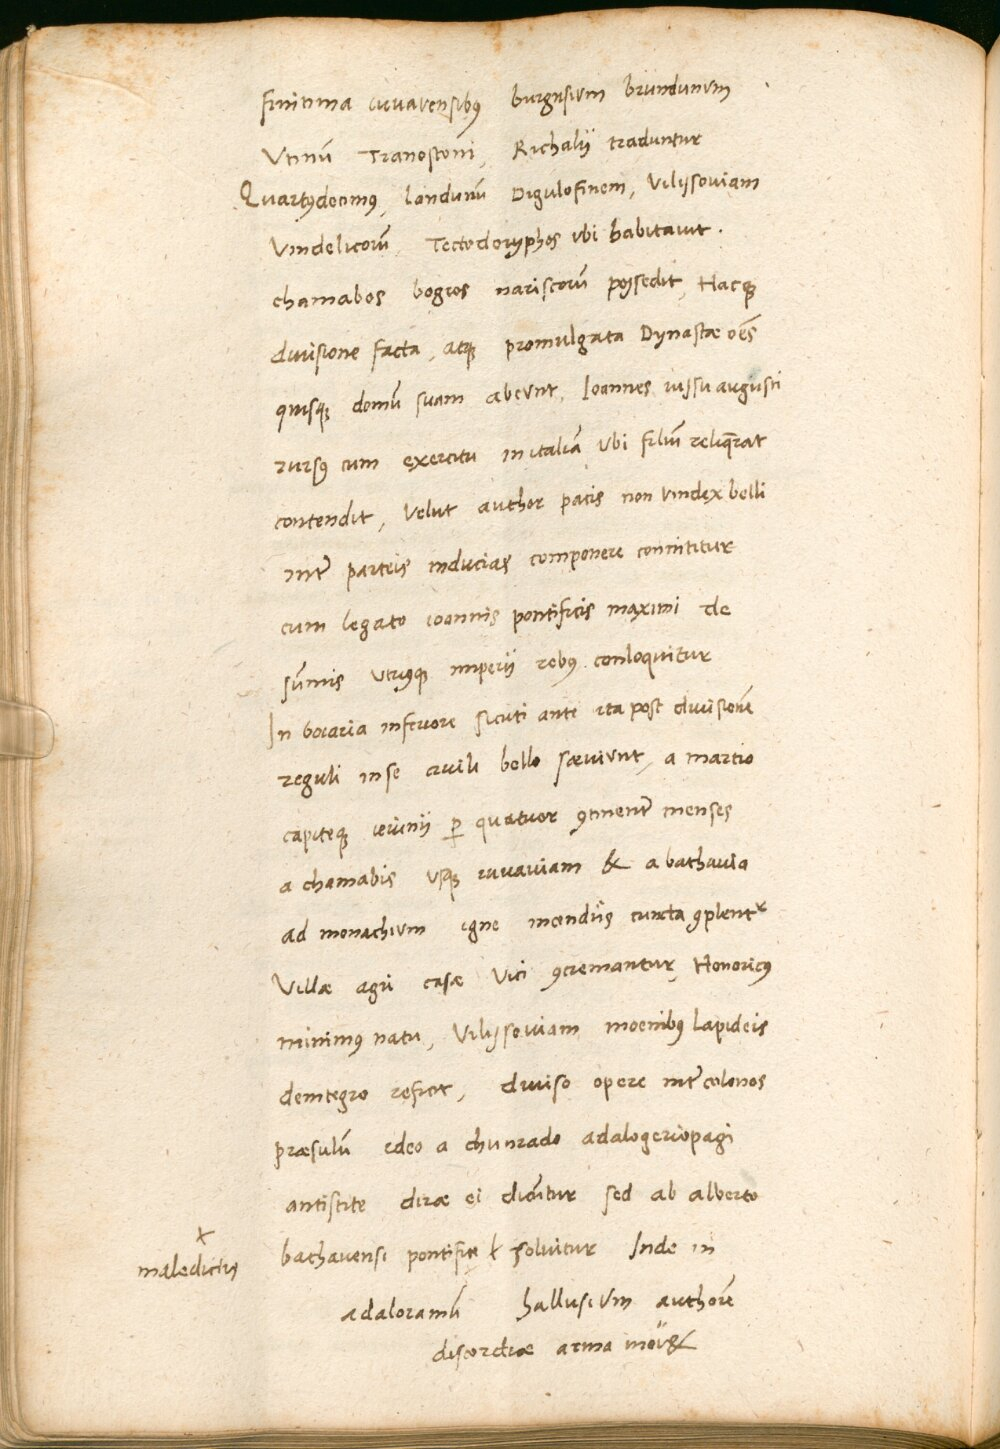 finitima iuvavensibꝰ burgusium brundunum
Vtinū Tranostoni, Richalij traduntur
Quartꝰdecimꝰ, landunū Digulofinem, Vilissoviam
Vindelicorū, Tectodoryphos ubi habitavit.
chamabos bogros nariscorū possedit, Hacqꝫ
divisione facta, atqꝫ promulgata Dynastæ oēs
quisqꝫ domū suam abeunt, Ioannes iussu augusti
rursꝰ cum exercitu in italiā Vbi filiū reliq̄rat
contendit, Velut author pacis non vindex belli
int̄ parteis inducias componere connititur
cum legato ioannis pontificis maximi de
sūmis utriꝰqꝫ imperij rebꝰ conloquitur
In boiaria inferiore sicuti ante ita post divisionē
reguli in se civili bello sæviunt, a martio
capiteqꝫ ieiunij ꝑ quatuor ꝯtinent̄ menses
a chamabis usqꝫ iuvaviam & a bathavia
ad monachium igne incendiis cuncta ꝯplentʳ
Villæ agri casæ Vici ꝯcremantur, Honoricꝰ
minimꝰ natu, Vilissoviam moenibꝰ lapideis
deintegro reficit, diviso opere int̄ colonos
præsulū ideo a chunrado adalogeriopagi
antistite diræ ei dicūtur sed ab alberto
bathavensi pontifice ҟ solvitur Inde in
x
maledictꝰ
adaloramū hallusium authorē
discordiæ arma mov&